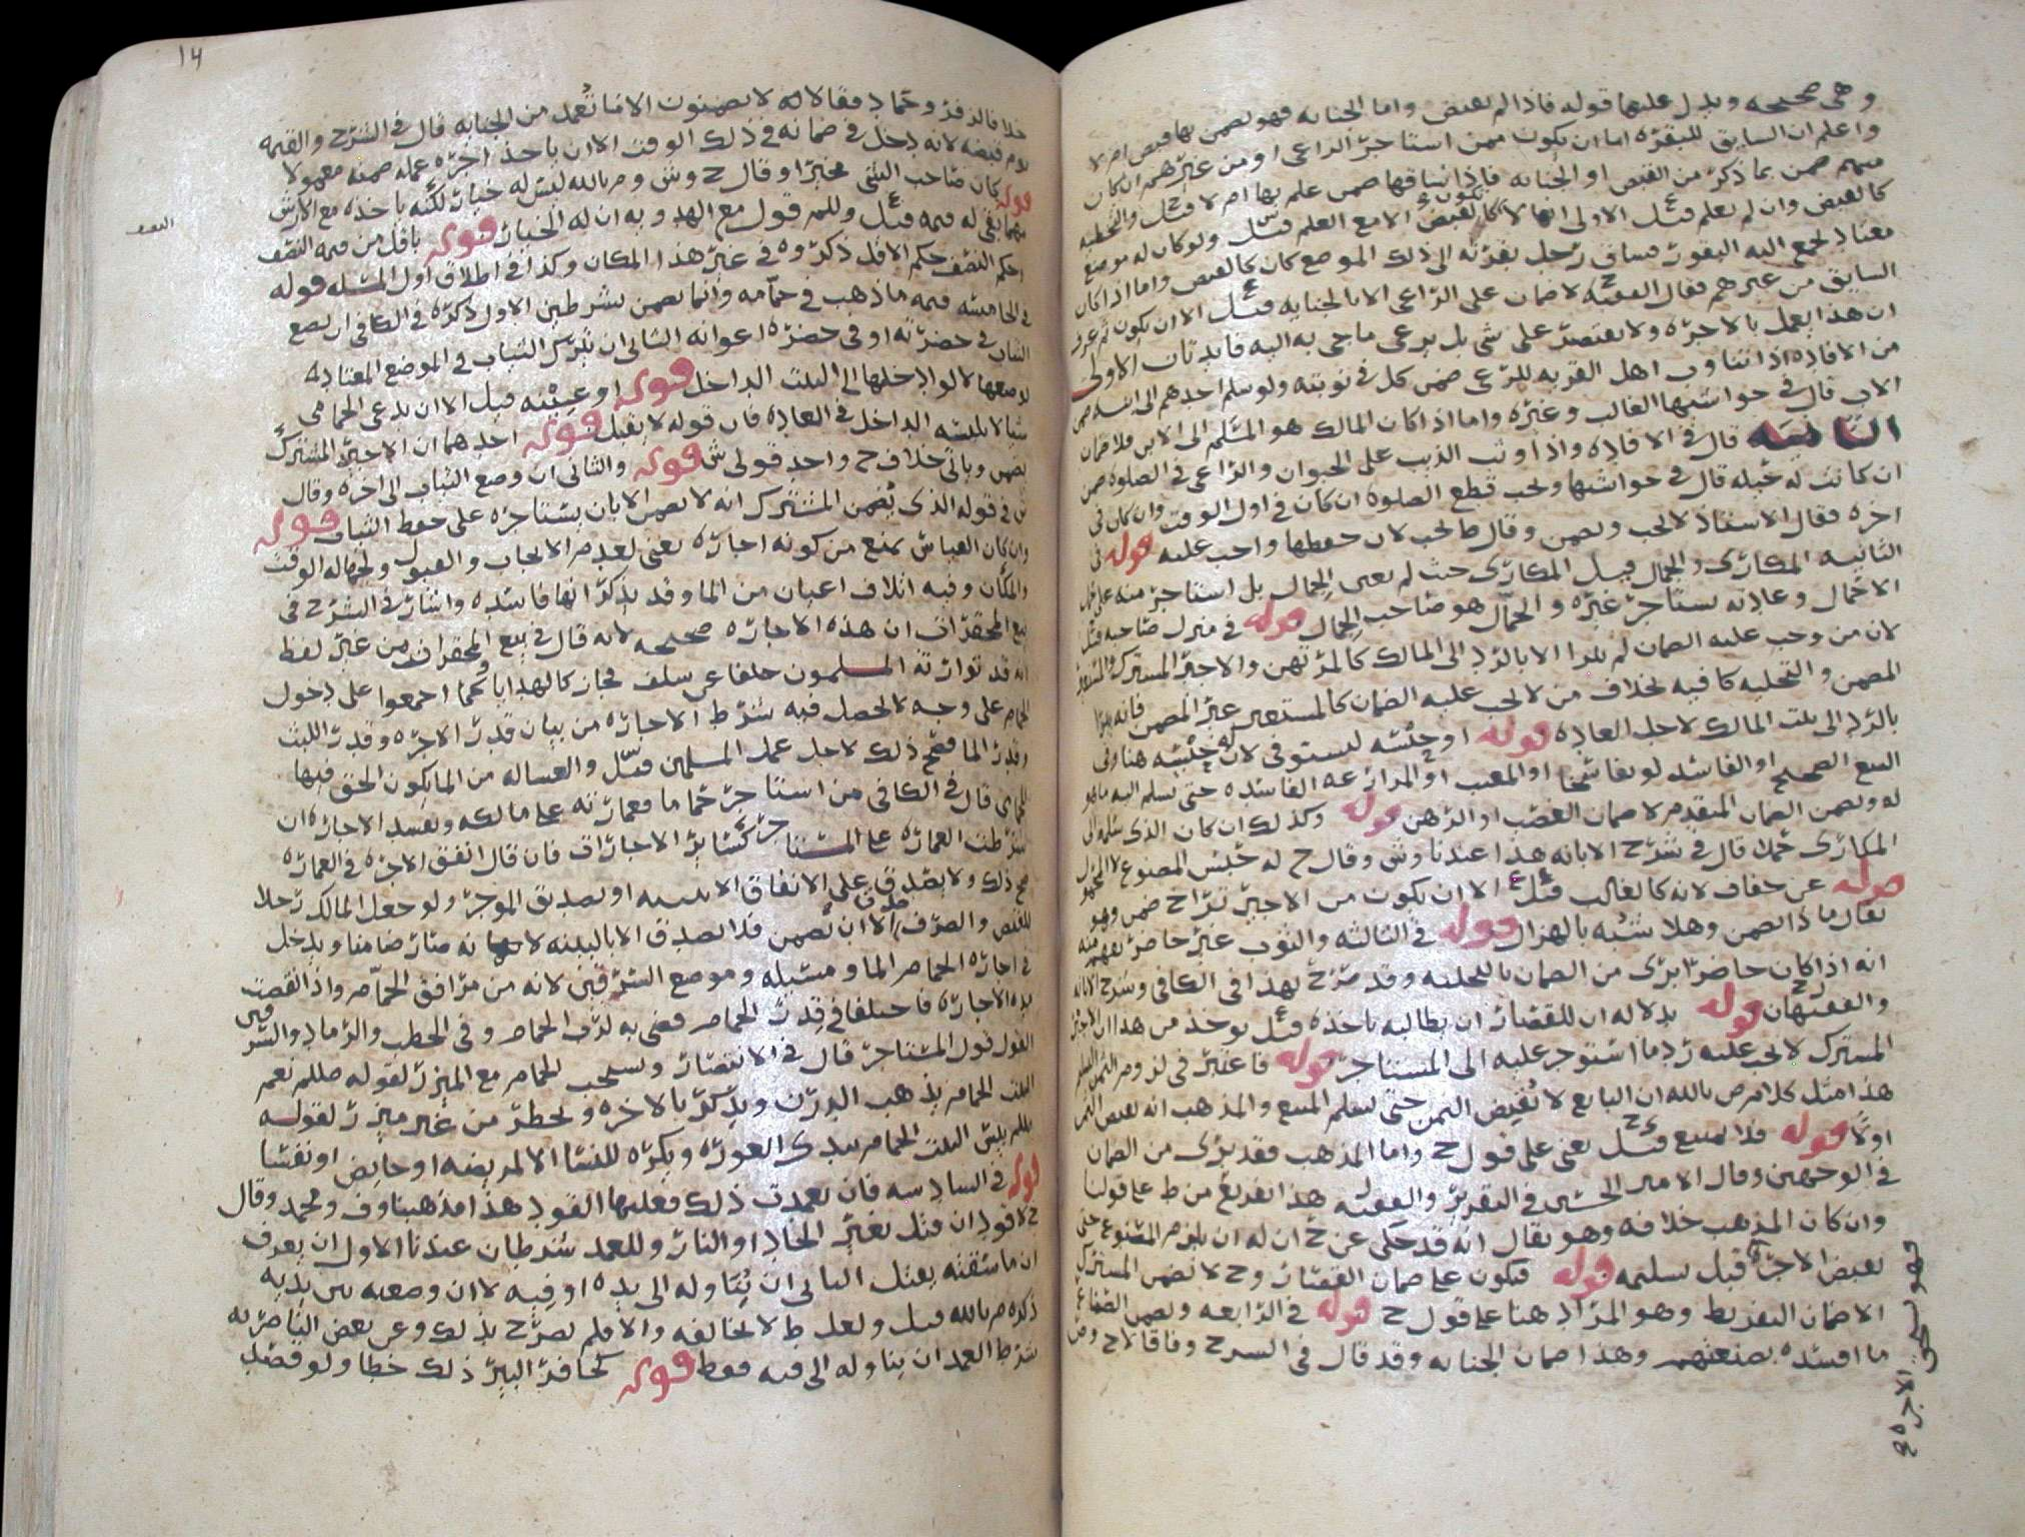 وهى صحيحه ويدل عليها قوله فاذا لم يقبض واما الجنايه فهو يضمن بها قبض ام لا
واعلم ان السابق للبقره اما ان يكون ممن استاجر الراعى او من غيرهم ان كان
منهم ضمن بما ذكر من القبض او الجنايه فاذا ساقها ضمن علم بها ام لا
كالقبض وان لم يعلم قيل الاولى انها لا تكون كالقبض الا مع العلم ولو كان له موضع
معتاد تجمع اليه البقور فساق رجل بقرته الى ذلك الموضع كان كالقبض واما اذا كان
السابق من غيرهم فقال الفقيه لا ضمان على الراعى الا بالجنايه قيل الا ان يكون
ان هذا يعمل بالاجره ولا يقتصر على شى بل يرعى ما جى به اليه فايدتان الاولى
من الافاده اذا تناوب اهل القريه للرعى ضمن كل فى نوبته ولو سلم احدهم الى ابنه ضمن
الاب قال فى حواشيها الغالب وغيره واما اذا كان المالك هو المسلم الى الابن فلا ضمان
الثانيه قال فى الافاده واذا وثب الذيب على الحيوان والراعى فى الصلوه ضمن
ان كانت له حيله قال فى حواشيها ويجب قطع الصلوه ان كان فى اول الوقت وان كان فى
اخره فقال الاستاذ لا يجب ويضمن وقال ط يجب لان حفظها واجب عليه قوله فى
الثانيه المكارى والجمال قيل المكارى حيث لم يعين الجمال بل استاجر منه على
الاحمال وعادته يستاجر غيره والجمّال هو صاحب الجمال قوله فى منزل صاحبه
لان من وجب عليه الضمان لم يبرا الا بالرد الى المالك كالمرتهن والاجير المشترك والمستعير
المضمن والتخليه كافيه بخلاف من لا يجب عليه الضمان كالمستعير غير المضمن فانه يبرا
بالرد الى بيت المالك لاجل العاده قوله او حبسه ليستوفى لان له حبسه هنا وفى
البيع الصحيح او الفاسد لو تفاسخا او المعيب او المزارعه الفاسده حتى يسلم اليه ما هو
له ويضمن الضمان المتقدم لا ضمان الغصب او الرهن قوله وكذلك ان كان الذى سلمه الى
المكارى حملا قال فى شرح الابانه هذا عندنا وش وقال ح له حبس المصنوع لا المحمول
قوله عن جفاف لانه كالغالب قيل الا ان يكون من الاجير تراخ ضمن وهو
يقال ماذا يضمن وهلا شبه بالهزال قوله فى الثالثه والثوب غير حاضر يفهم منه
انه اذا كان حاضرا برى من الضمان بالتخليه وقد صرح بهذا فى الكافى وشرح الابانه
والفقيهان قوله بدلاله ان للقصار ان يطالبه باخذه قيل يوخذ من هذا ان الاجير
المشترك لا يجب عليه رد ما استوجر عليه الى المستاجر قوله فاعتبر فى لزوم الثمن التسليم
هذا مثل كلام ص بالله ان البايع لا يقبض الثمن حتى يسلم المبيع والمذهب انه يقبض الثمن
اولا قوله فلا يمتنع قيل يعنى على قول ح واما المذهب فقد برى من الضمان
فى الوجهين وقال الامير الحسين فى التقرير والفقيه هذا تفريع من ط على قولنا
وان كان المذهب خلافه وهو يقال انه قد حكى عن ح ان له ان يلزم المصنوع حتى
يقبض الاجره قبل تسليمه قوله فيكون على ضمان القصار وح لا يضمن المشترك
الا ضمان التفريط وهو المراد هنا على قول ح قوله فى الرابعه ويضمن الصناع
ما افسده بصنعتهم وهذا ضمان الجنايه وقد قال فى الشرح وفاقا لا ح وش
فهو يستحق الاجره
14
خلافا لزفر وحماد فقالا انه لا يضمنون الا ما تعمد من الجنايه قال فى الشرح والقيمه
يوم قبضه لانه دخل فى ضمانه فى ذلك الوقت الا ان ياخذ اجره عمله ضمنه معمولا
قوله كان صاحب الشى مخيرا وقال ح وش وص بالله ليس له خيار لكنه ياخذه مع الارش
مهما بقى له قيمه قيل وللم قول مع الهدويه ان له الخيار قوله باقل من قيمه النصف
حكم النصف حكم الاقل ذكروه فى غير هذا المكان وكذا فى اطلاق اول المسله قوله
فى الخامسه قيمه ما ذهب فى حمامه وانما يضمن بشرطين الاول ذكره فى الكافى ان يضع
الثياب فى حضرته او فى حضره اعوانه الثانى ان يترك الثياب فى الموضع المعتاد
لوضعها لا لو ادخلها الى البيت الداخل قوله او عينته قيل الا ان يدعى الحمامى
شيا لا يلبسه الداخل فى العاده فان قوله لا يقبل قوله احدهما ان الاجير المشترك
يضمن وياتى خلاف ح واحد قولى ش قوله والثانى ان وضع الثياب الى اخره وقال
ش فى قوله الذى يضمن المشترك انه لا يضمن الا بان يستاجره على حفظ الثياب قوله
وان كان القياس يمنع من كونه اجاره يعنى لعدم الايجاب والقبول ولجهاله الوقت
والمكان وفيه اتلاف اعيان من الما وقد يذكر انها فاسده واشار فى الشرح فى
بيع المحقرات ان هذه الاجاره صحيحه لانه قال فى بيع المحقرات من غير لفظ
انه قد توارثه المسلمون خلفا عن سلف فجاز كالهدايا وكما اجمعوا على دخول
الحمام على وجه لا يحصل فيه شرط الاجاره من بيان قدر الاجره وقدر اللبث
وقدر الما فصح ذلك لاجل عمل المسلمين قيل والغساله من الما يكون الحق فيها
للحمامى قال فى الكافى من استاجر حماما فعمارته على مالكه وتفسد الاجاره ان
شرطت العماره على المستاجر كساير الاجارات فان قال انفق الاجره فى العماره
صح ذلك ولا يصدق على الانفاق الا ببينه او تصديق الموجر ولو جعل المالك رجلا
للقبض والصرف صدق الا ان يضمن فلا يصدق الا بالبينه لانه صار ضامنا ويدخل
فى اجاره الحمام الما ومسيله وموضع السرقين لانه من مرافق الحمام واذا انقضت
مده الاجاره فاختلفا فى قدر الحمام قضى به لرب الحمام وفى الحطب والرماد والسرقين
القول قول المستاجر قال فى الانتصار ويستحب الحمام مع الميزر لقوله صللم نعم
البيت الحمام يذهب الدرن ويذكر بالاخره ويحظر من غير ميزر لقوله
صللم بيس البيت الحمام يبدى العوره ويكره للنسا الا لمريضه او حايض او نفسا
قوله فى السادسه فان تعمدت ذلك فعليها القود هذا مذهبنا وف ومحمد وقال
ح لا قود ان قتل بغير الحاد او النار وللعمد شرطان عندنا الاول ان يعرف
ان ما سقته يقتل الثانى ان يناوله الى يده او فيه لا ان وضعه بين يديه
ذكره ص بالله قيل ولعل ط لا يخالفه والا فلم يصرح بذلك وعن بعض الناصريه
شرط العمد ان يناوله الى فيه فقط قوله كحافر البير ذلك خطا ولو قصد